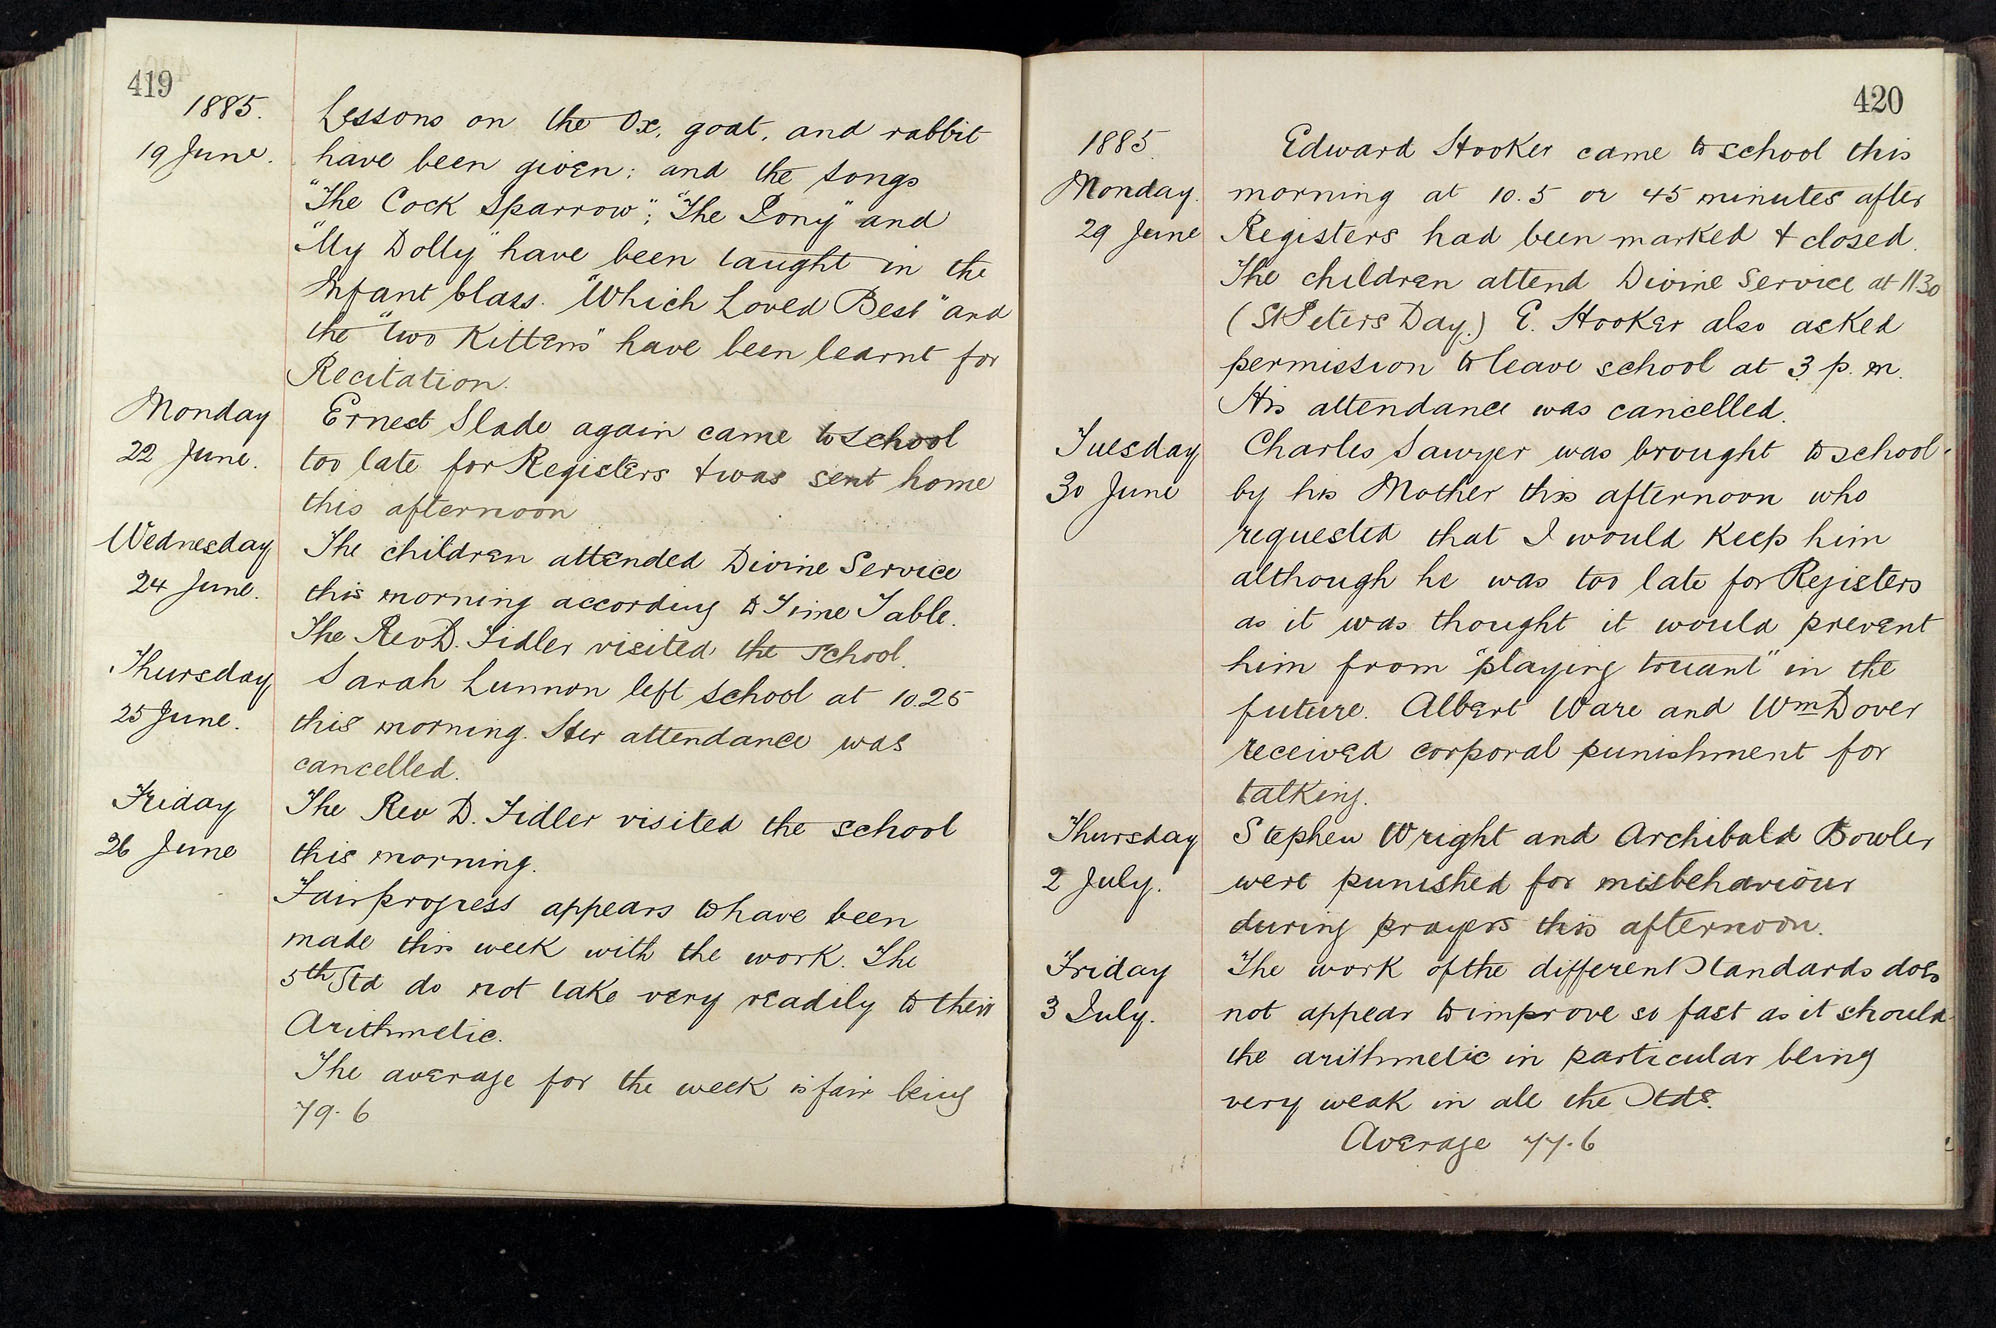 419
1885.
19 June.
Lessons on the Ox, goat, and rabbit
have been given: and the songs
"The Cock Sparrow"; "The Pony" and
"My Dolly" have been taught in the
Infant Class. "Which Loved Best" and
the "Two Kittens" have been learnt for
Recitation.
Monday
22 June.
Ernest Slade again came to school
too late for Registers & was sent home
this afternoon
Wednesday
24 June.
The children attended Divine Service
this morning according to Time Table.
The Rev D. Fidler visited the School.
Thursday
25 June.
Sarah Lunnon left school at 10.25
this morning. Her attendance was
cancelled.
Friday
26 June
The Rev D. Fidler visited the school
this morning.
Fair progress appears to have been
made this week with the work. The
5th Std do not take very readily to their
Arithmetic.
The average for the week is fair being
79.6
420
1885.
Monday.
29 June
Edward Hooker came to school this
morning at 10.5 or 45 minutes after
Registers had been marked & closed.
The children attend Divine Service at 11 30
(St Peters Day.) E. Hooker also asked
permission to leave school at 3 p.m.
His attendance was cancelled.
Tuesday
30 June
Charles Sawyer was brought to school
by his Mother this afternoon who
requested that I would keep him
although he was too late for Registers
as it was thought it would prevent
him from "playing truant" in the
future. Albert Ware and Wm Dover
received corporal punishment for
talking.
Thursday
2 July.
Stephen Wright and Archibald Bowler
were punished for misbehaviour
during prayers this afternoon.
Friday
3 July.
The work of the different Standards does
not appear to improve so fast as it should
the arithmetic in particular being
very weak in all the Stds.
Average 77.6